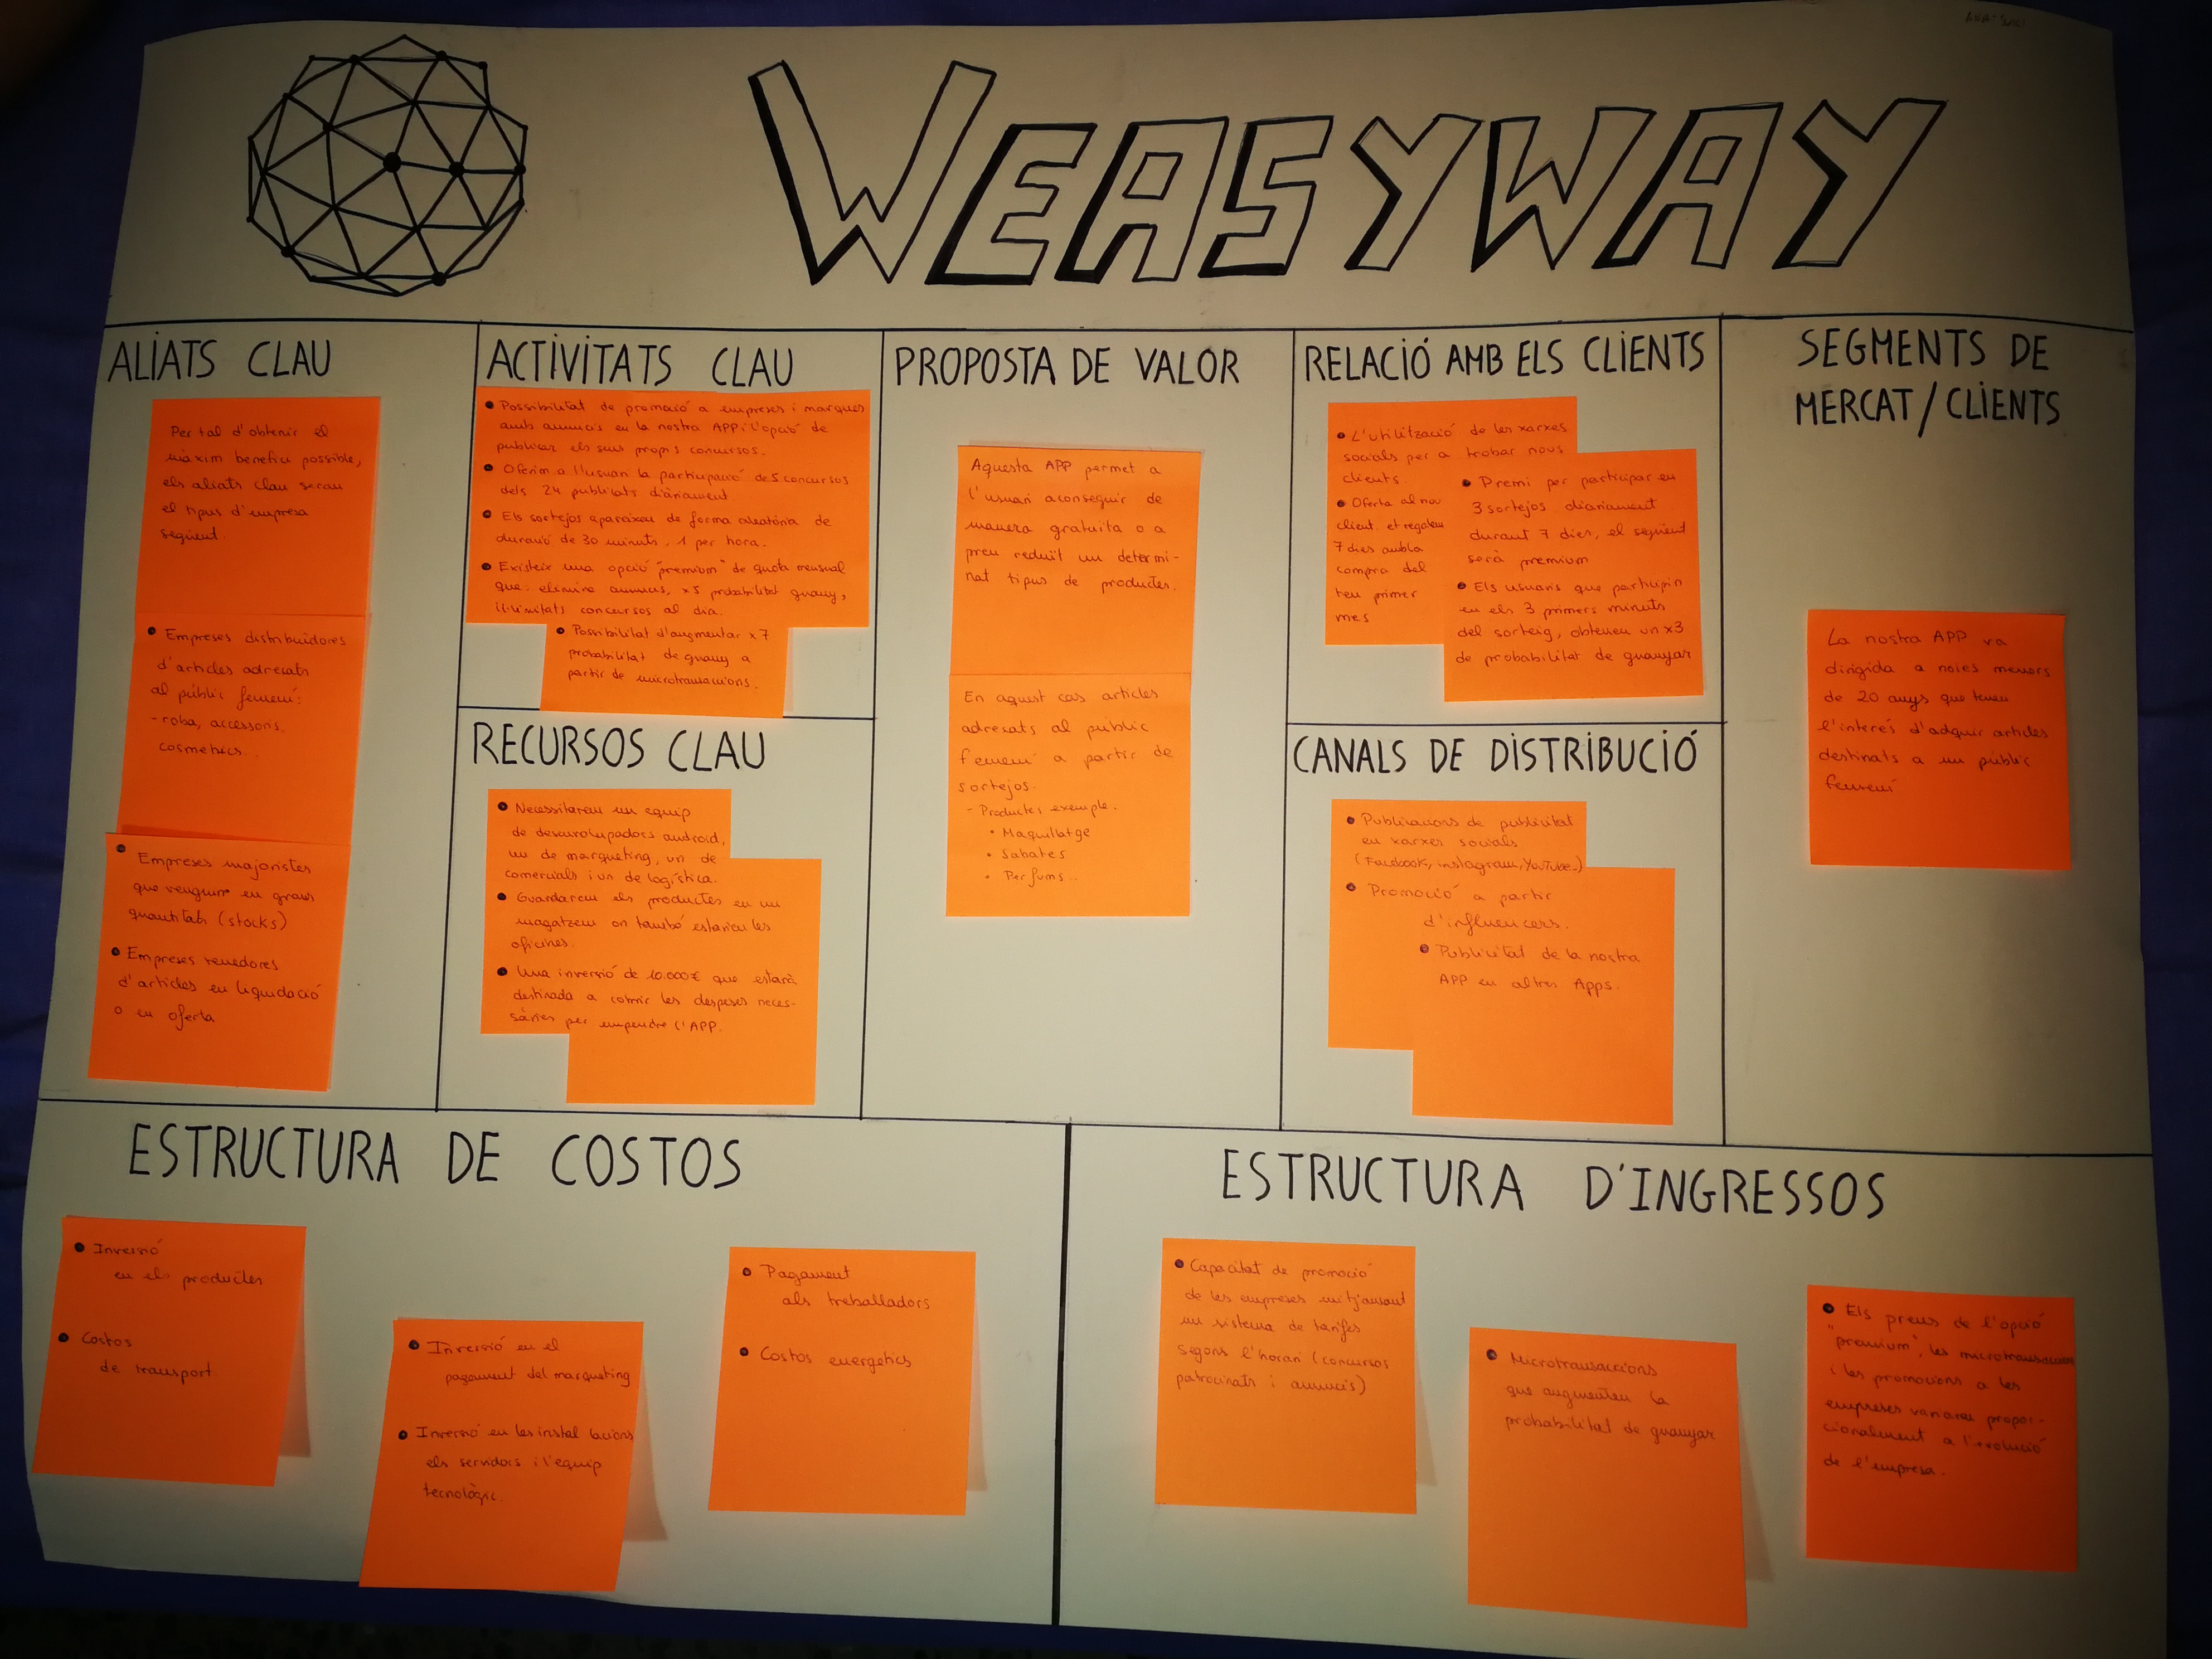 WEASYWAY
ALIATS CLAU
Per tal d'obtenir el
màxim benefici possible,
els aliats clau seran
el tipus d'empresa
següent.
• Empreses distribuidores
d'articles adreçats
al públic femení:
- roba, accessoris,
cosmètics...
• Empreses majoristes
que venguin en grans
quantitats (stocks)
• Empreses venedores
d'articles en liquidació
o en oferta
ACTIVITATS CLAU
• Possibilitat de promoció a empreses i marques
amb anuncis en la nostra APP i l'opció de
publicar els seus propis concursos.
• Oferim a l'usuari la participació de 5 concursos
dels 24 publicats diàriament
• Els sortejos apareixen de forma aleatòria de
duració de 30 minuts, 1 per hora.
• Existeix una opció "premium" de quota mensual
que: elimina anuncis, x5 probabilitat guany,
il·limitats concursos al dia.
• Possibilitat d'augmentar x7
probabilitat de guany a
partir de microtransaccions.
RECURSOS CLAU
• Necessitarem un equip
de desenvolupadors android,
un de marqueting, un de
comercials i un de logística.
• Guardarem els productes en un
magatzem on també estarien les
oficines.
• Una inversió de 10.000€ que estarà
destinada a cobrir les despeses neces-
sàries per empendre l'APP.
PROPOSTA DE VALOR
Aquesta APP permet a
l'usuari aconseguir de
manera gratuïta o a
preu reduït un determi-
nat tipus de productes.
En aquest cas articles
adreçats al públic
femení a partir de
sortejos.
- Productes exemple.
• Maquillatge
• Sabates
• Perfums...
RELACIÓ AMB ELS CLIENTS
• L'utilització de les xarxes
socials per a trobar nous
clients.
• Oferta al nou
client. et regalem
7 dies amb la
compra del
teu primer
mes
• Premi per participar en
3 sortejos diariament
durant 7 dies, el següent
serà premium
• Els usuaris que participin
en els 3 primers minuts
del sorteig, obtenen un x3
de probabilitat de guanyar
CANALS DE DISTRIBUCIÓ
• Publicacions de publicitat
en xarxes socials
(Facebook, instagram, YouTube...)
• Promoció a partir
d'influencers.
• Publicitat de la nostra
APP en altres Apps.
SEGMENTS DE
MERCAT / CLIENTS
La nostra APP va
dirigida a noies menors
de 20 anys que tenen
l'interés d'adquir articles
destinats a un públic
femení
ESTRUCTURA DE COSTOS
• Inversió
en els productes
• Costos
de transport
• Inversió en el
pagament del marqueting
• Inversió en les instal lacions
els servidors i l'equip
tecnològic.
• Pagament
als treballadors
• Costos energètics
ESTRUCTURA D'INGRESSOS
• Capacitat de promoció
de les empreses mitjansant
un sistema de tarifes
segons l'horari (concursos
patrocinats i anuncis)
• Microtransaccions
que augmenten la
probabilitat de guanyar
• Els preus de l'opció
"premium", les microtransaccions
i les promocions a les
empreses variaran propor-
cionalment a l'evolució
de l'empresa.